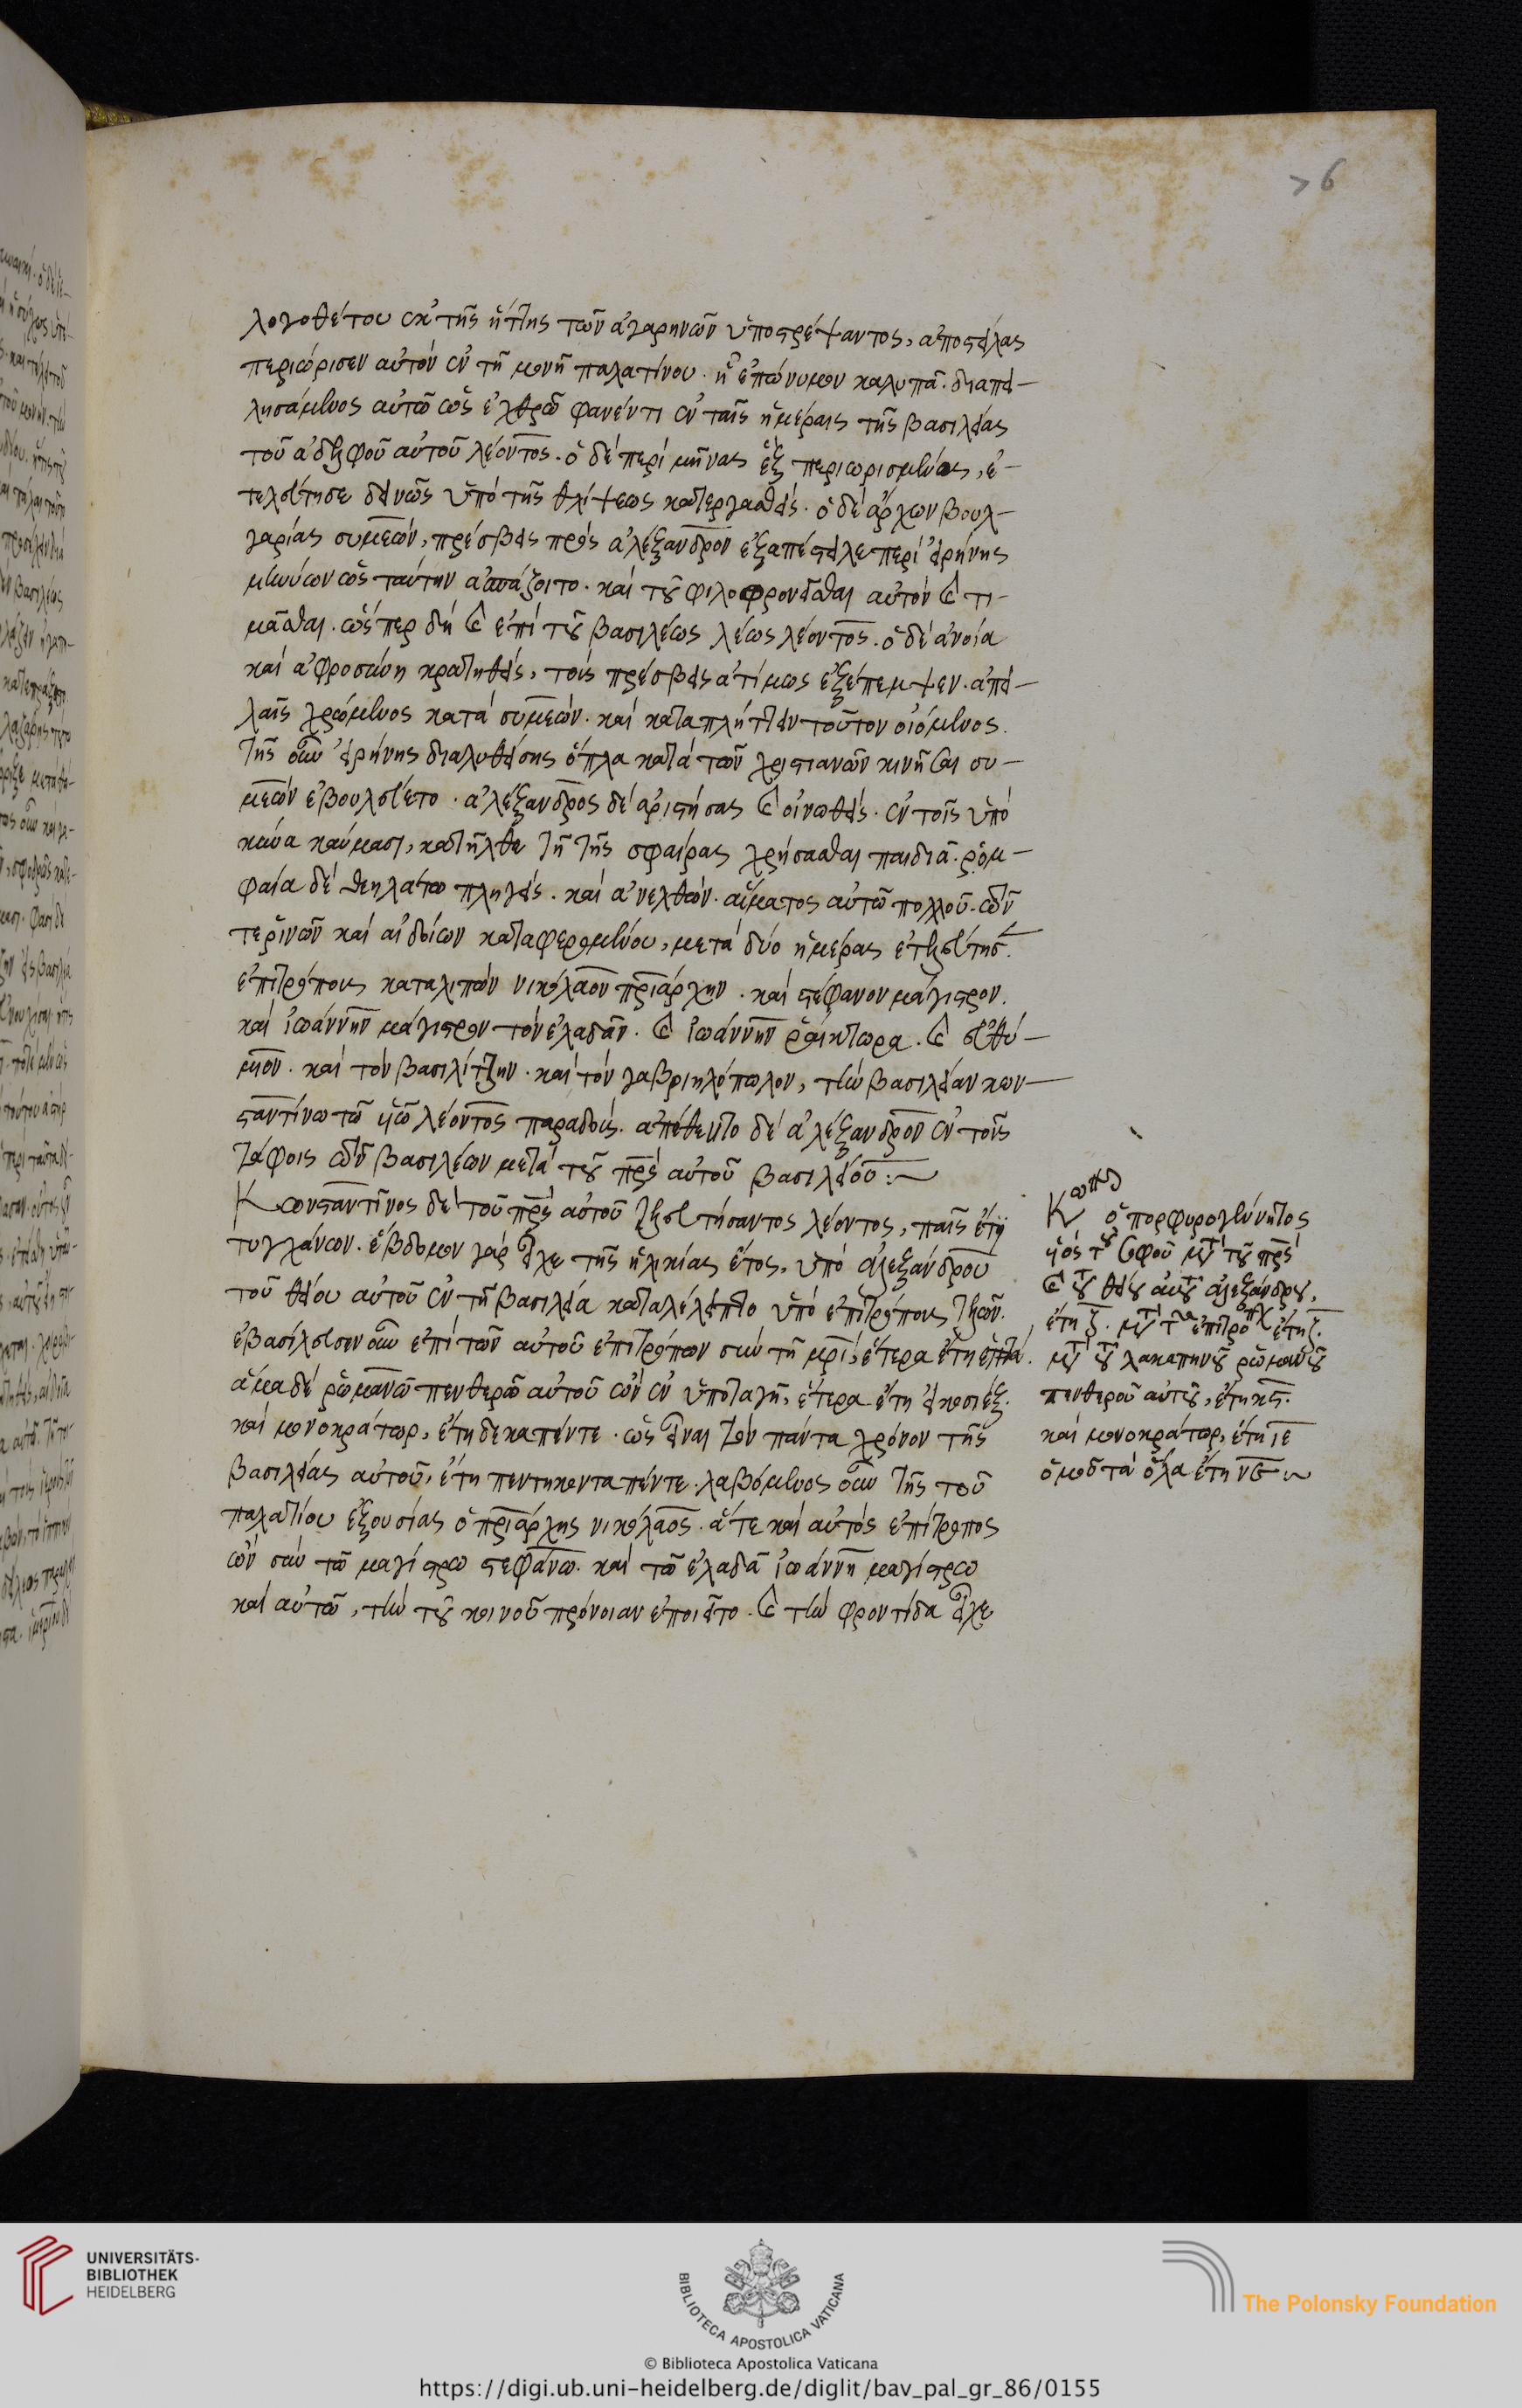 76
λογοθέτου ἐκ τῆς ἥττης τῶν ἀγαρηνῶν ὑποστρέψαντος, ἀποστείλας
περιώρισεν αὐτὸν ἐν τῇ μονῇ παλατίνου. ἢ ἐπώνυμον καλυπᾶ. διαπει-
λησάμενος αὐτῷ ὡς ἐχθρῷ φανέντι ἐν ταῖς ἡμέραις τῆς βασιλείας
τοῦ ἀδελφοῦ αὐτοῦ λέοντος. ὁ δὲ περὶ μῆνας ἓξ περιωρισμένος, ἐ-
τελεύτησε δεινῶς ὑπὸ τῆς θλίψεως κατεργασθείς. ὁ δὲ ἄρχων βουλ-
γαρίας συμεών, πρέσβεις πρὸς ἀλέξανδρον ἐξαπέστειλε περὶ εἰρήνης
μηνύων ὡς ταύτην ἀσπάζοιτο. καὶ τοῦ φιλοφρονεῖσθαι αὐτὸν καὶ τι-
μᾶσθαι. ὥσπερ δὴ καὶ ἐπὶ τοῦ βασιλέως λέως λέοντος. ὁ δὲ ἀνοία
καὶ ἀφροσύνη κρατηθείς, τοὺς πρέσβεις ἀτίμως ἐξέπεμψεν. ἀπει-
λαῖς χρώμενος κατὰ συμεών. καὶ καταπλήττειν τοῦτον οἰόμενος.
τῆς οὖν εἰρήνης διαλυθείσης ὅπλα κατὰ τῶν χριστιανῶν κινῆσαι συ-
μεὼν ἐβουλεύετο. ἀλέξανδρος δὲ ἀριστήσας καὶ οἰνωθείς. ἐν τοῖς ὑπὸ
κύνα καύμασι, κατῆλθε τῇ τῆς σφαίρας χρήσασθαι παιδιᾷ. ῥομ-
φαία δὲ θεηλάτω πληγείς. καὶ ἀνελθών. αἵματος αὐτῷ πολλοῦ
καὶ αἰδοίων καταφερομένου, μετὰ δύο ἡμέρας ἐτελεύτησεν.
ἐπιτρόπους καταλιπὼν νικόλαον πριάρχην. καὶ στέφανον μάγιστρον.
καὶ ἰωάννην μάγιστρον τὸν ἐλαδᾶν. καὶ ἰωάννην ῥαίκτωρα. καὶ εὐθύ-
μιον. καὶ τὸν βασιλίτζην. καὶ τὸν γαβριηλόπωλον, τὴν βασιλείαν κων-
σταντίνω τῷ υἱῷ λέοντος παραδούς. ἀπέθεντο δὲ ἀλέξανδρον ἐν τοῖς
τάφοις τῶν βασιλέων μετὰ τοῦ πρς αὐτοῦ βασιλείου :~
Κωνσταντῖνος δὲ τοῦ πρς αὐτοῦ τελευτήσαντος λέοντος, παῖς ἔτι
τυγχάνων. ἕβδομον γὰρ εἶχε τῆς ἡλικίας ἔτος, ὑπὸ ἀλεξάνδρου
τοῦ θείου αὐτοῦ ἐν τῇ βασιλεία καταλέλειπτο ὑπὸ ἐπιτρόπους τελῶν.
ἐβασίλευσεν οὖν ἐπὶ τῶν αὐτοῦ ἐπιτρόπων σὺν τῇ μρί, ἕτερα ἔτη ἑπτά.
ἅμα δὲ ῥωμανῷ πενθερῷ αὐτοῦ ὢν ἐν ὑποταγῇ, ἕτερα ἔτη εἴκοσι ἕξ.
καὶ μονοκράτωρ, ἔτη δεκαπέντε. ὡς εἶναι τὸν πάντα χρόνον τῆς
βασιλείας αὐτοῦ, ἔτη πεντήκοντα πέντε. λαβόμενος οὖν τῆς τοῦ
παλατίου ἐξουσίας ὁ πριάρχης νικόλαος. ἅτε καὶ αὐτὸς ἐπίτροπος
ὢν σὺν τῷ μαγίστρω στεφάνω. καὶ τῷ ἐλαδᾷ ἰωάννη μαγίστρω
καὶ αὐτῷ, τὴν τοῦ κοινοῦ πρόνοιαν ἐποιεῖτο. καὶ τὴν φροντίδα εἶχε
Κων
ὁ πορφυρογέννητος
υἱὸς τοῦ σοφοῦ μετὰ τοῦ πρς
καὶ τοῦ θείου αὐτοῦ ἀλεξάνδρου,
ἔτη ζ. μετὰ ἐπιτρόπων ἔτη ζ.
μετὰ τοῦ λακαπηνοῦ ῥωμανοῦ
πενθεροῦ αὐτοῦ, ἔτη κς.
καὶ μονοκράτωρ, ἔτη ιε
ὁμοῦ τὰ ὅλα ἔτη νε ~
UNIVERSITÄTS-
BIBLIOTHEK
HEIDELBERG
BIBLIOTECA APOSTOLICA VATICANA
The Polonsky Foundation
© Biblioteca Apostolica Vaticana
https://digi.ub.uni-heidelberg.de/diglit/bav_pal_gr_86/0155